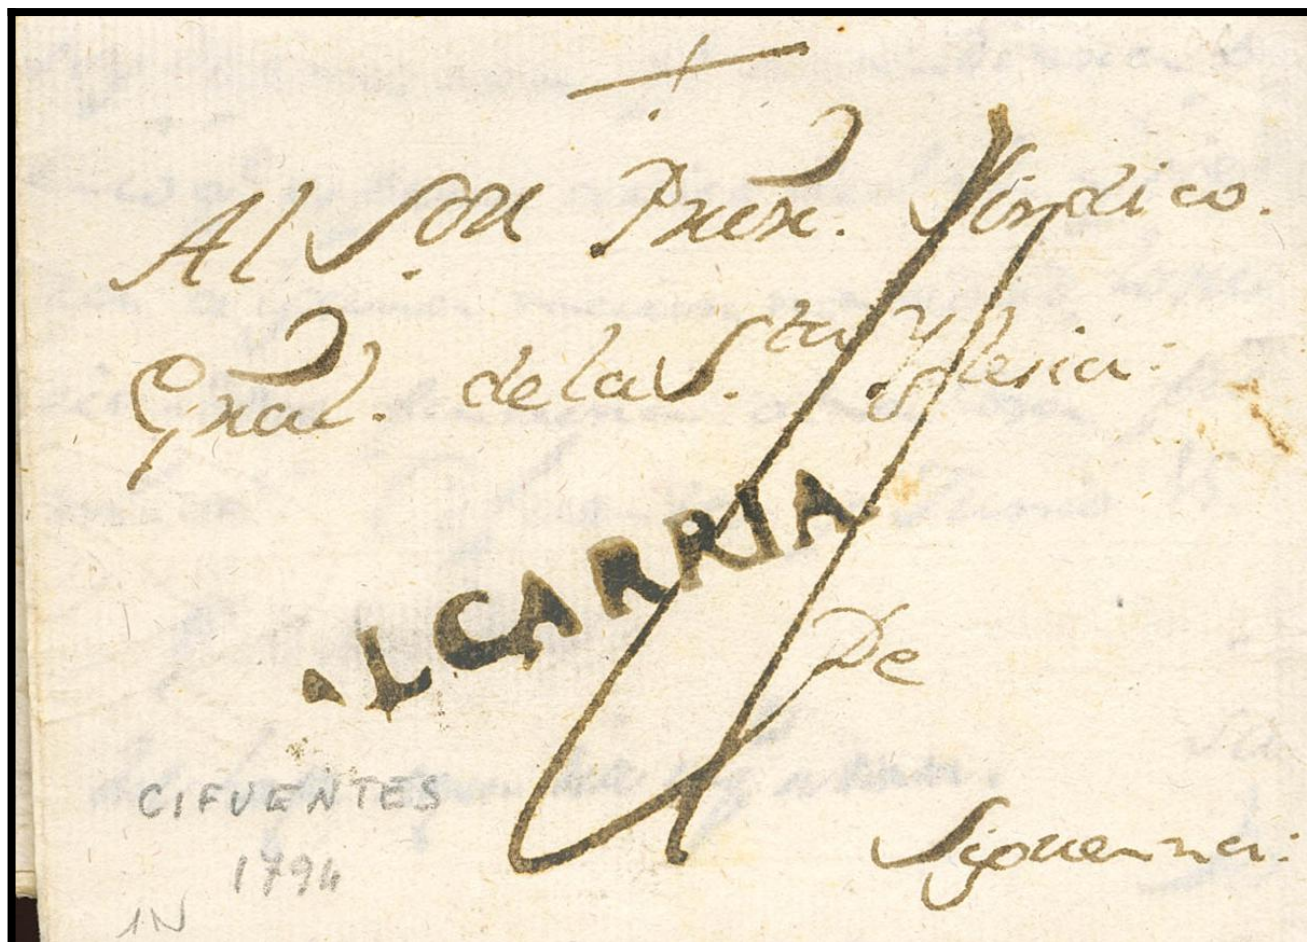 Al Sor. Prior. Síndico.
Gral. de la Sta. Yglesia.
ALCARRIA
De
CIFUENTES
Siguenza.
1794
1N